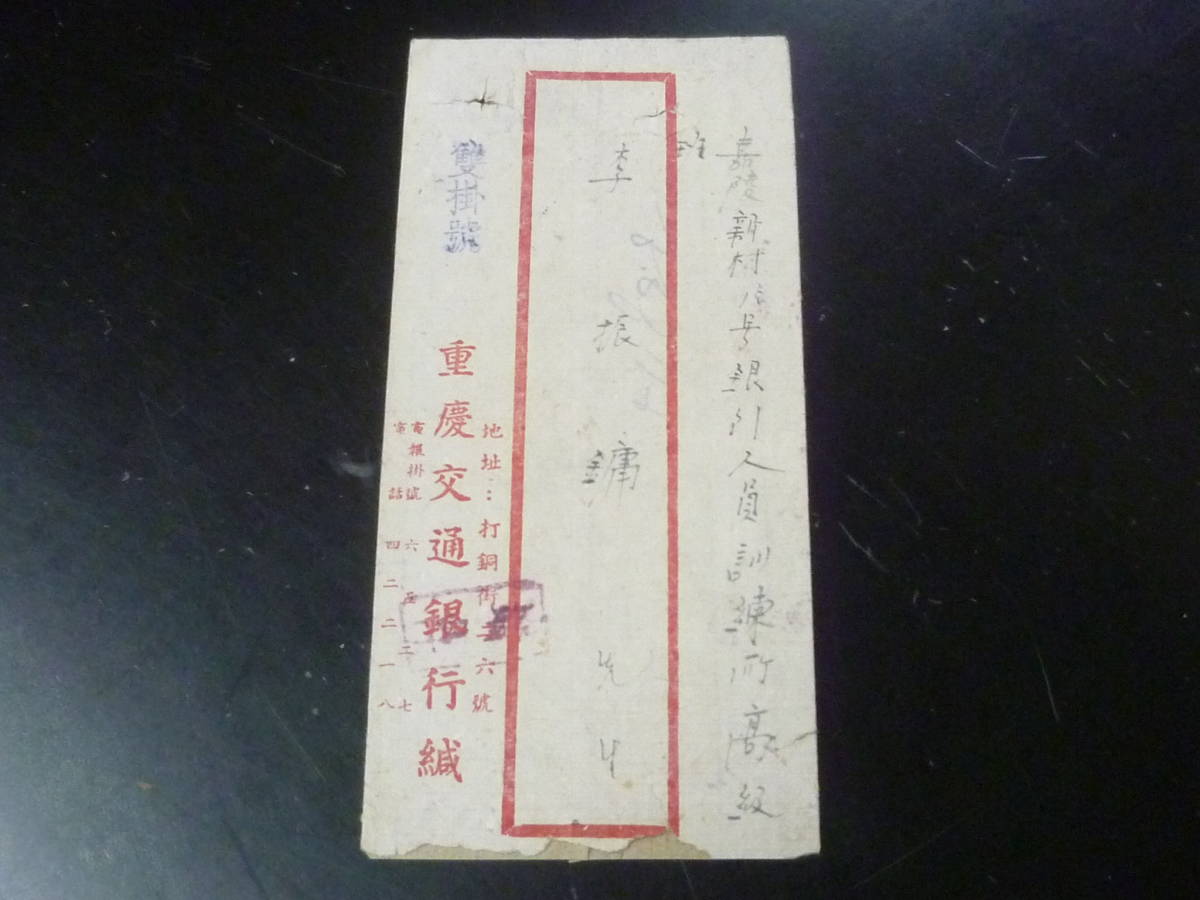 嘉陵新村号銀行人員訓練所高級
班
李振鏞先生
雙掛號
地址：打銅街六號
重慶交通銀行緘
電報掛號 六五二七
電話 四二二一八